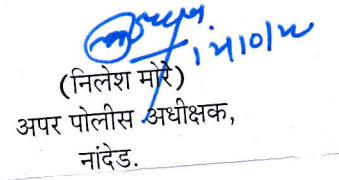 (निलेश मोरे)
अपर पोलीस अधीक्षक,
नांदेड.